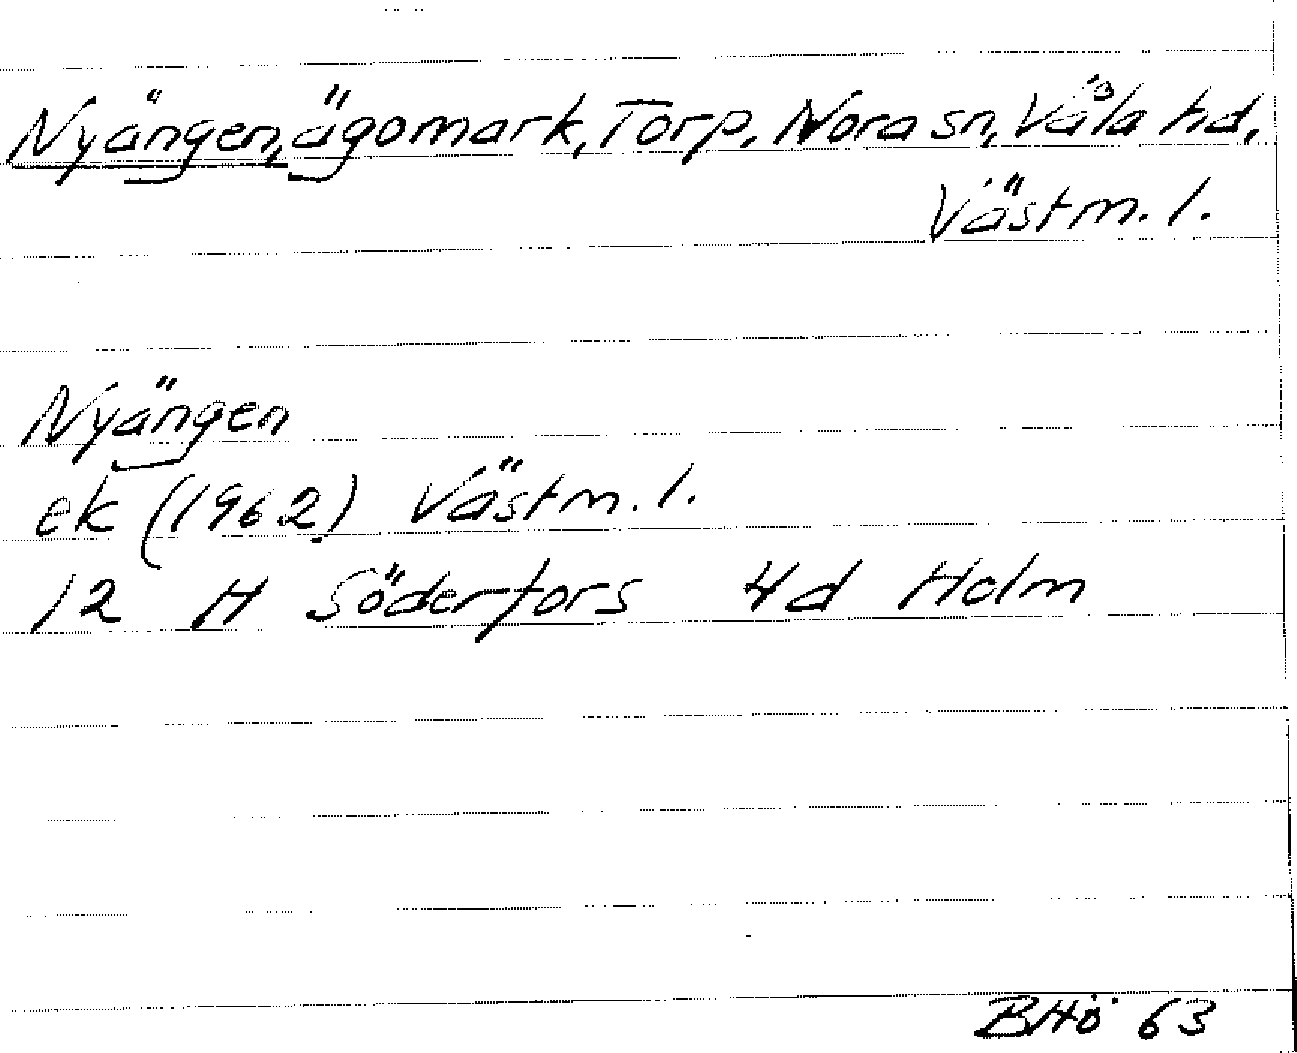 Nyängen, ägomark, Torp, Nora sn, Våla hd,
Västm. l.
Nyängen
ek (1962) Västm. l.
12 H Söderfors 4d Holm
BHö 63